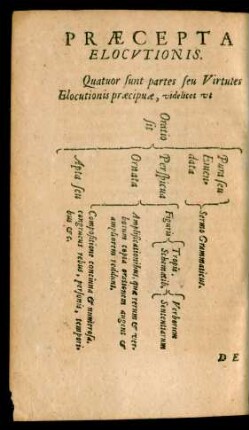 PRÆCEPTA
ELOCVTIONIS.
Quatuor sunt partes seu Virtutes
Elocutionis præcipuæ, videlicet vt
Oratio
sit
Pura seu
Emen-
data
Sermo Grammaticus.
Perspicua
Figuris
Tropis.
Schematib.
Verborum
Sententiarum
Ornata
Amplificationibus, quæ rerum & ver-
borum copia orationem augent &
ampliorem reddunt.
Apta seu
Compositione concinna & numerosa.
congruens rebus, personis, tempori-
bus &c.
DE